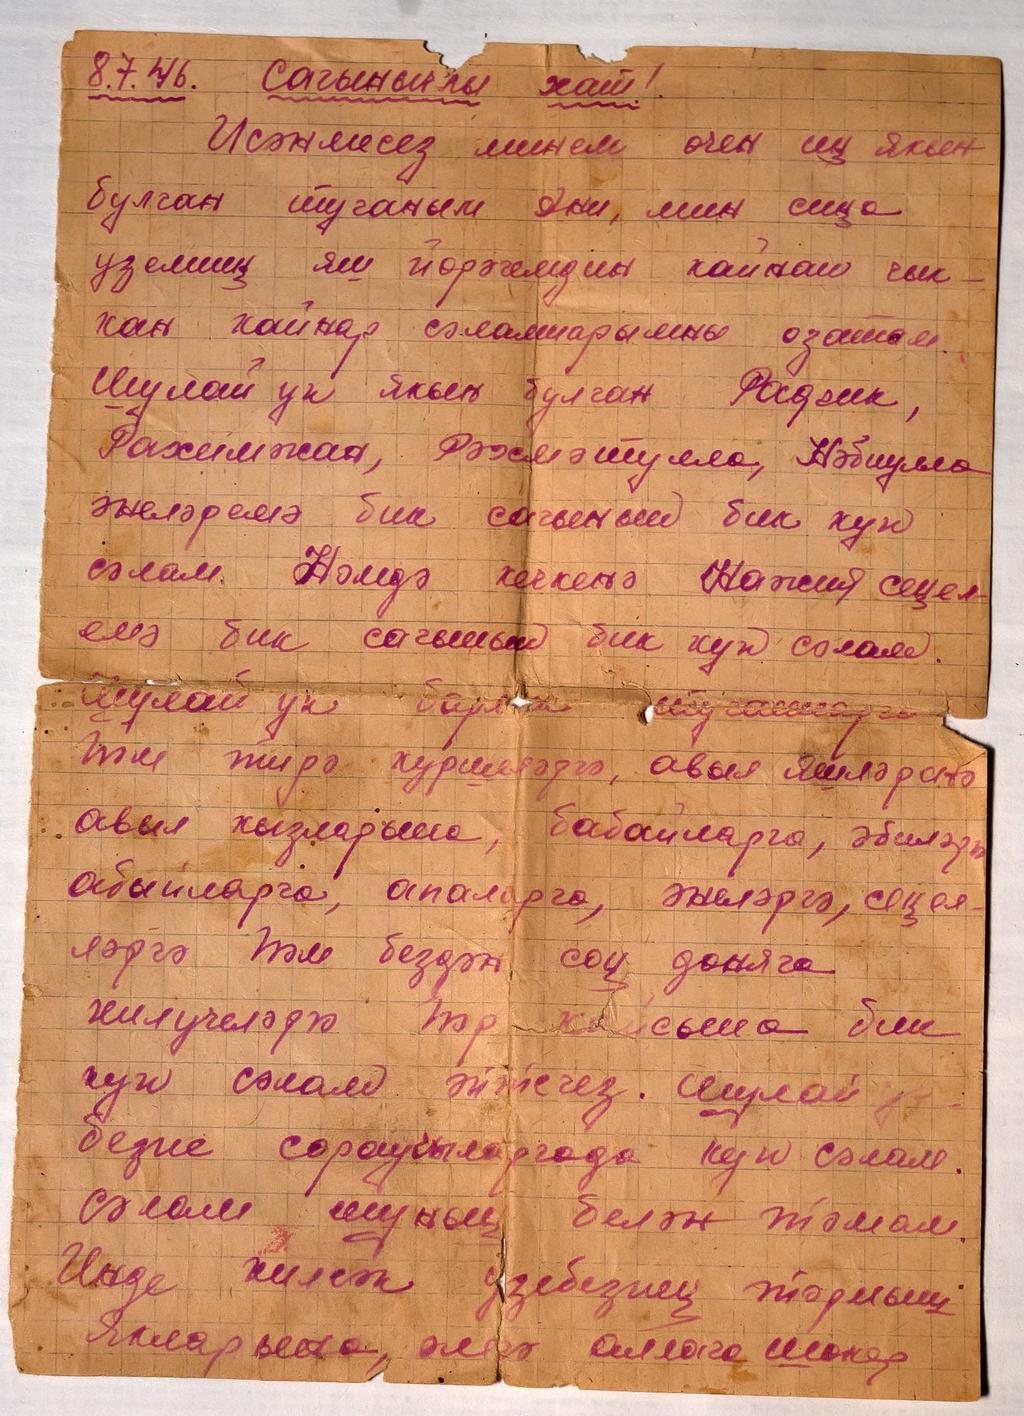 8.7.46. Сагынычлы хат!
Исәнмесез минем өчен иң якын
булган туганым Әни, мин сиңа
үземнең яш йөрәгемдин кайнап чык-
кан кайнар сәламнәремне озатам.
Шулай ук якын булган Рәдвик,
Рахимжан, Рәхмәтулла, Нәбиулла
энеләремә бик сагынып бик күп
сәлам. Һәмдә кечкенә Нажия сеңел-
емә бик сагынып бик күп сәлам.
Шулай ук барлык туганнарга
һәм тирә күршеләргә, авыл яшләренә
авыл кызларына, бабайларга, әбиләргә
абыйларга, апаларга, энеләргә, сеңел-
ләргә һәм бездән соң дөняга
килүчеләргә һәр кайсына бик
күп сәлам әйтегез. Шулай ук
безне сораучыларгада күп сәлам.
Сәлам шуның белән тәмам.
Инде килсәк үзебезнең тормыш
якларына, әлегә аллага шөкер